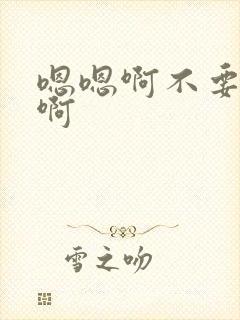 嗯嗯啊不要
啊
雪之吻